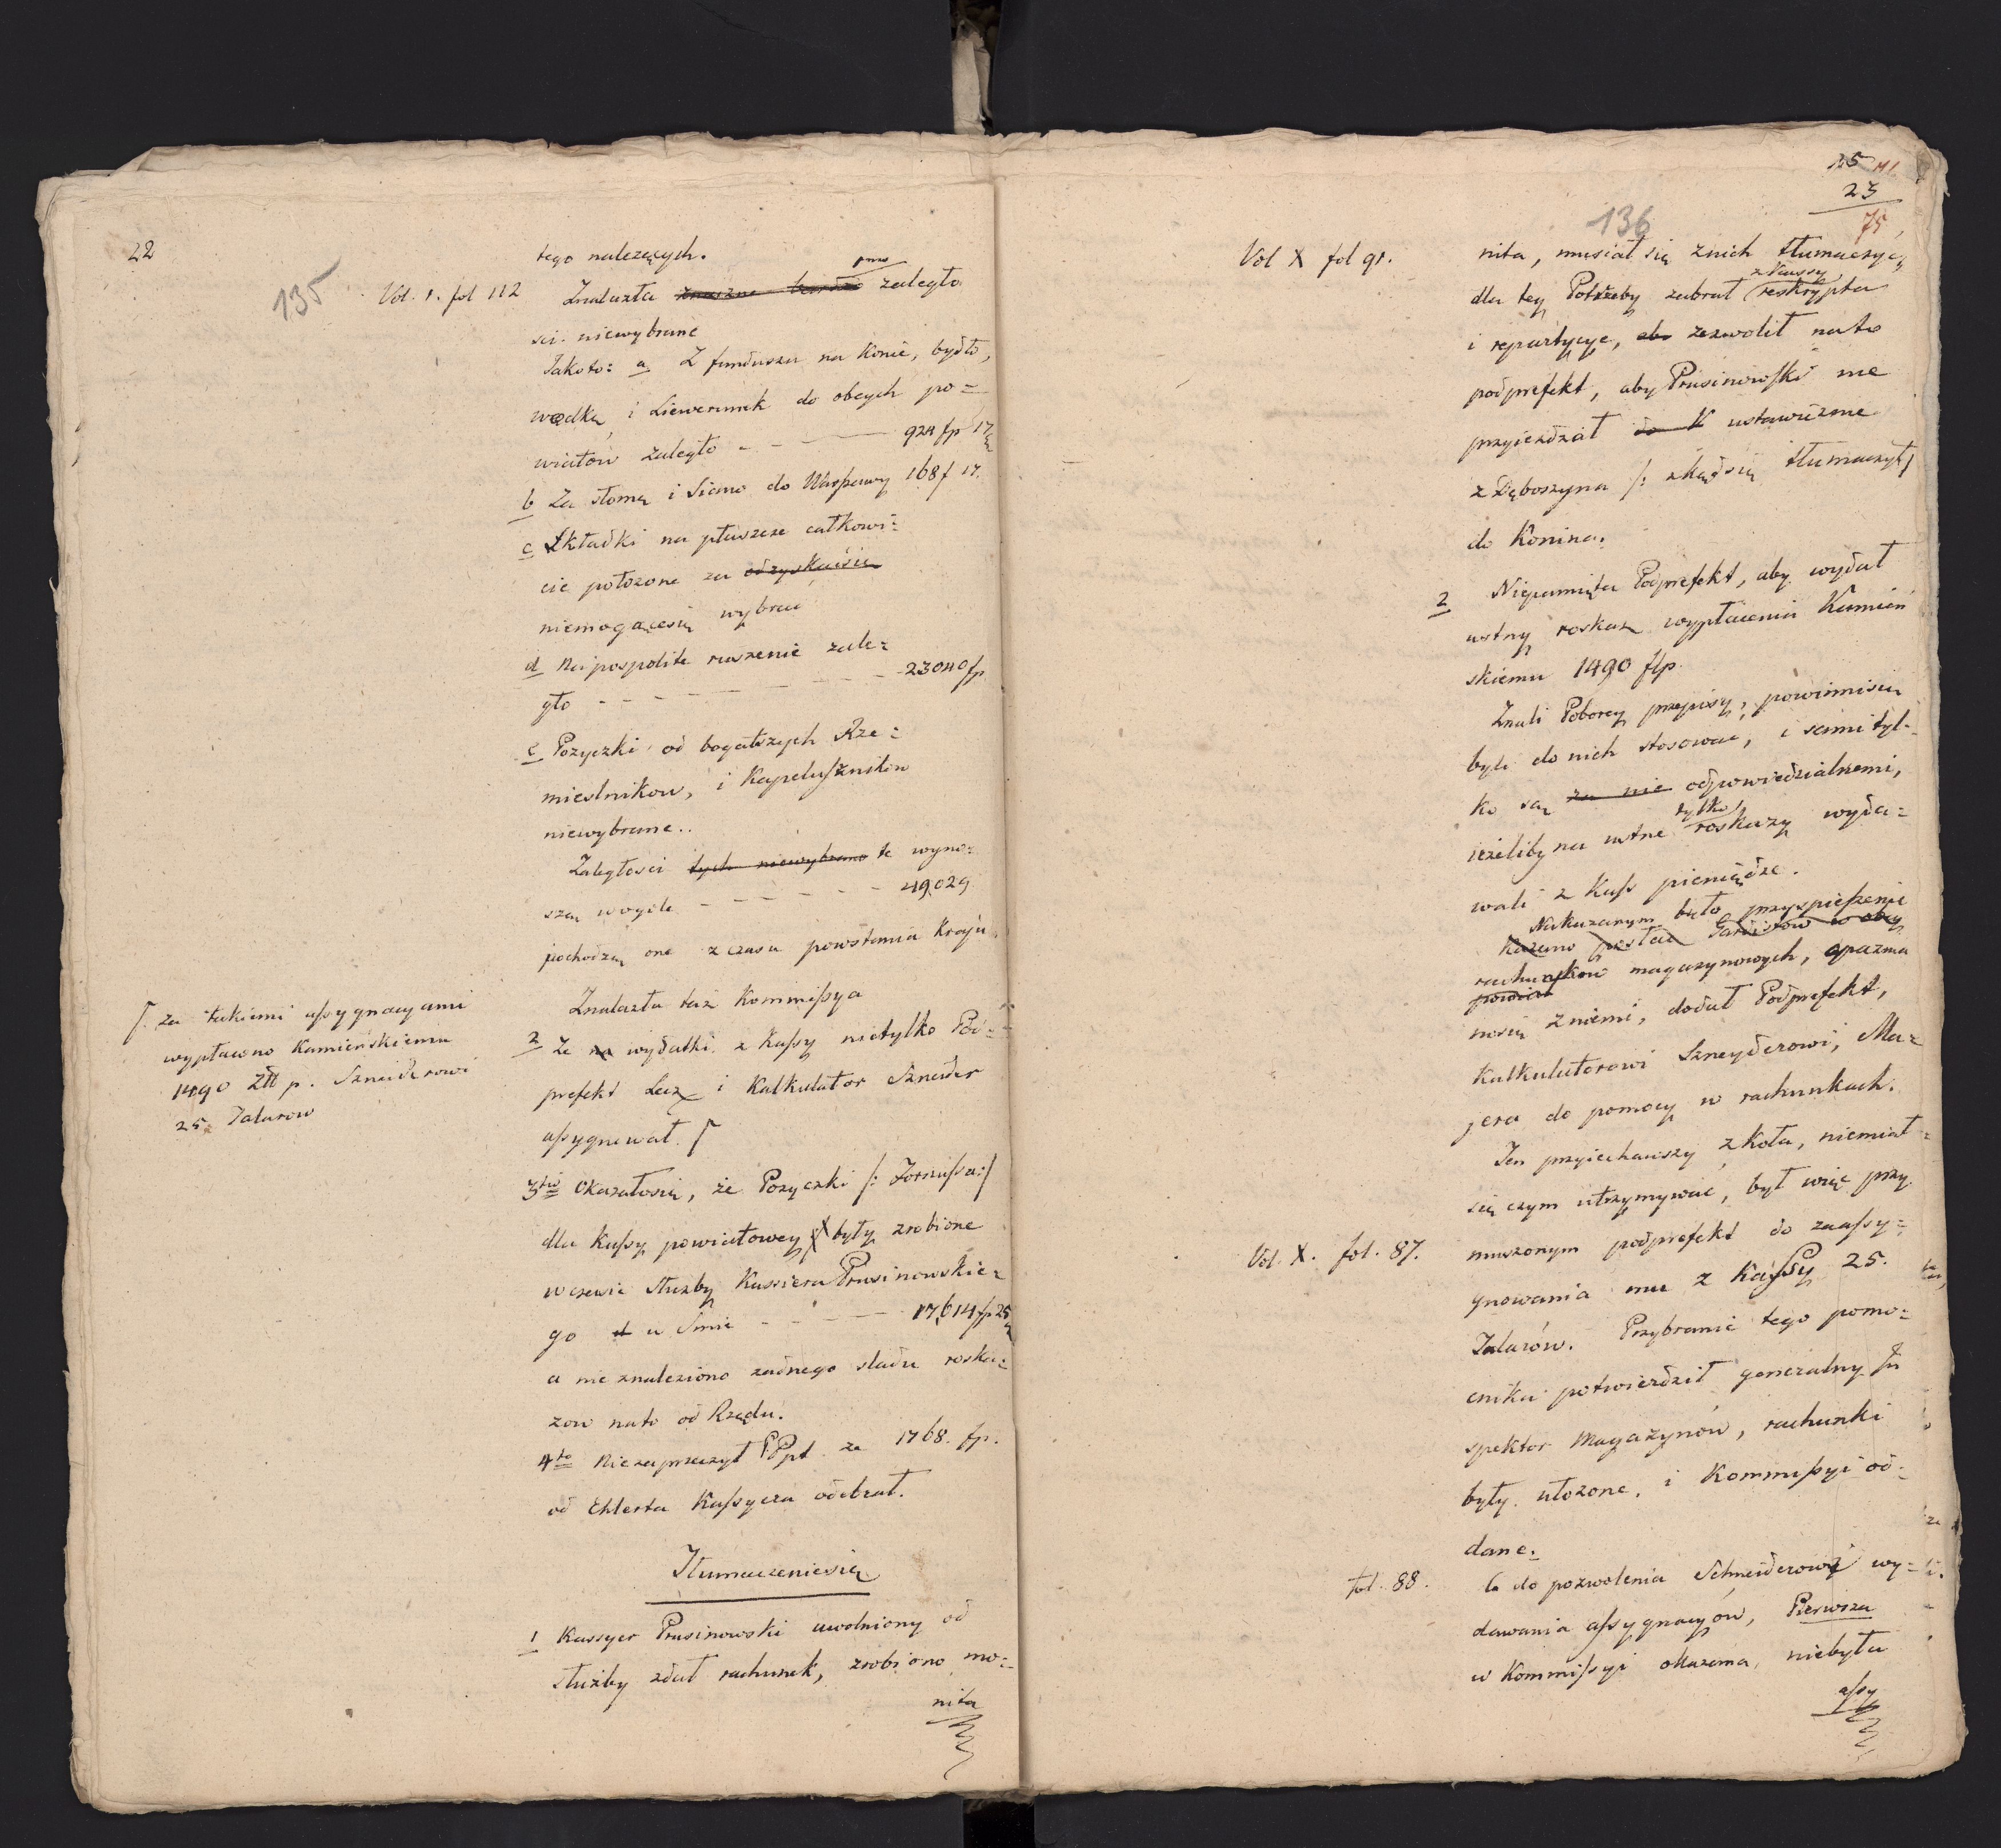 22
135
tego należących.
Vol. 1. fol 112
Znalazła znaczne bardzo zaległo
sci niewybrane
Jakoto: a Z funduszu na konie, bydło,
wodkę i Liwerunek do obcych po=
wiatow zaległo - - 924 fp 17
b Za słomę i Siano do Warszawy 168 f 17.
c Składki na płaszcze całkowi=
cie położone za odzyskaćsię
niemogącesię wybrać
d Na pospolite ruszenie zale=
gło - - - - - - 23040 fp
e Pozyczki od bogatszych Rze=
mieslnikow, i Kapelusznikow
niewybrane..
Zaległosci tych niewybrano te wyno=
szą wogule - - - - - 49,029
pochodzą one z czasu powstania Kraju.
Znalazła taż Kommissya
2 Ze na wydatki z Kassy nietylko Pod=
prefekt Lecz i Kalkulator Sznejder
assygnował. ſ
ſ. za takiemi assygnacyami
wypłacono Kamieńskiemu
1490 Złł p. Sznejderowi
25 Talarow
3tio Okazałosię, że Pozyczki /: Forszussa:/
dla Kassy powiatowey były zrobione
w czasie służby Kassiera Prusinowskie=
go w Smie - - - - 17,614 fp 25
a nie znaleziono żadnego sladu roska=
zow nato od Rządu.
4to Niezaprzeczył PPt. że 1768. fp.
od Ehlerta Kassyera odebrał.
Tłumaczeniesię
1 Kassyer Prusinowski uwolniony od
służby zdał rachunek, zrobiono mo=
nita
25
23
75
136
Vol X fol 91.
nita, musiał się znich tłumaczyć,
z Kassy
dla tey Potrzeby zabrał reskrypta
i repartycye, abo zezwolił nato
podprefekt, aby Prusinowski nie
przyieżdżał do K ustawicznie
z Dąboszyna /: zkądsię tłumaczył/
do Konina.
2 Niepamięta Podprefekt, aby wydał
ustny roskaz wypłacenia Kamień
skiemu 1490 flp.
Znali Poborcy przepisy, powinnisię
byli do nich stosować, i sami tyl=
ko są za nie odpowiedzialnemi,
tylko
ieżeliby na ustne roskazy wyda=
wali z Kass pieniądze.
Nakazanym było przyspieszenie
Kazano przysłać
rachunkow magazynowych, opazna
powiat
nosię zniemi, dodał Podprefekt,
Kalkulatorowi Szneyderowi, Ma=
jera do pomocy w rachunkach.
Ten przyiechawszy z Koła, niemiał
się czym utrzymywać, był więc przy
Vol. X. fol. 87.
muszonym podprefekt do zaassy=
gnowania mu z Kassy 25.
Talarów. Przybranie tego pomo=
cnika potwierdził generalny In
spektor Magazynów, rachunki
były ułożone, i Kommissyi od=
dane.
Fol. 88.
Co do pozwolenia Schneiderowi wy=
dawania assygnacyów, Pierwsza
w Kommissyi okazana, niebyła
assy